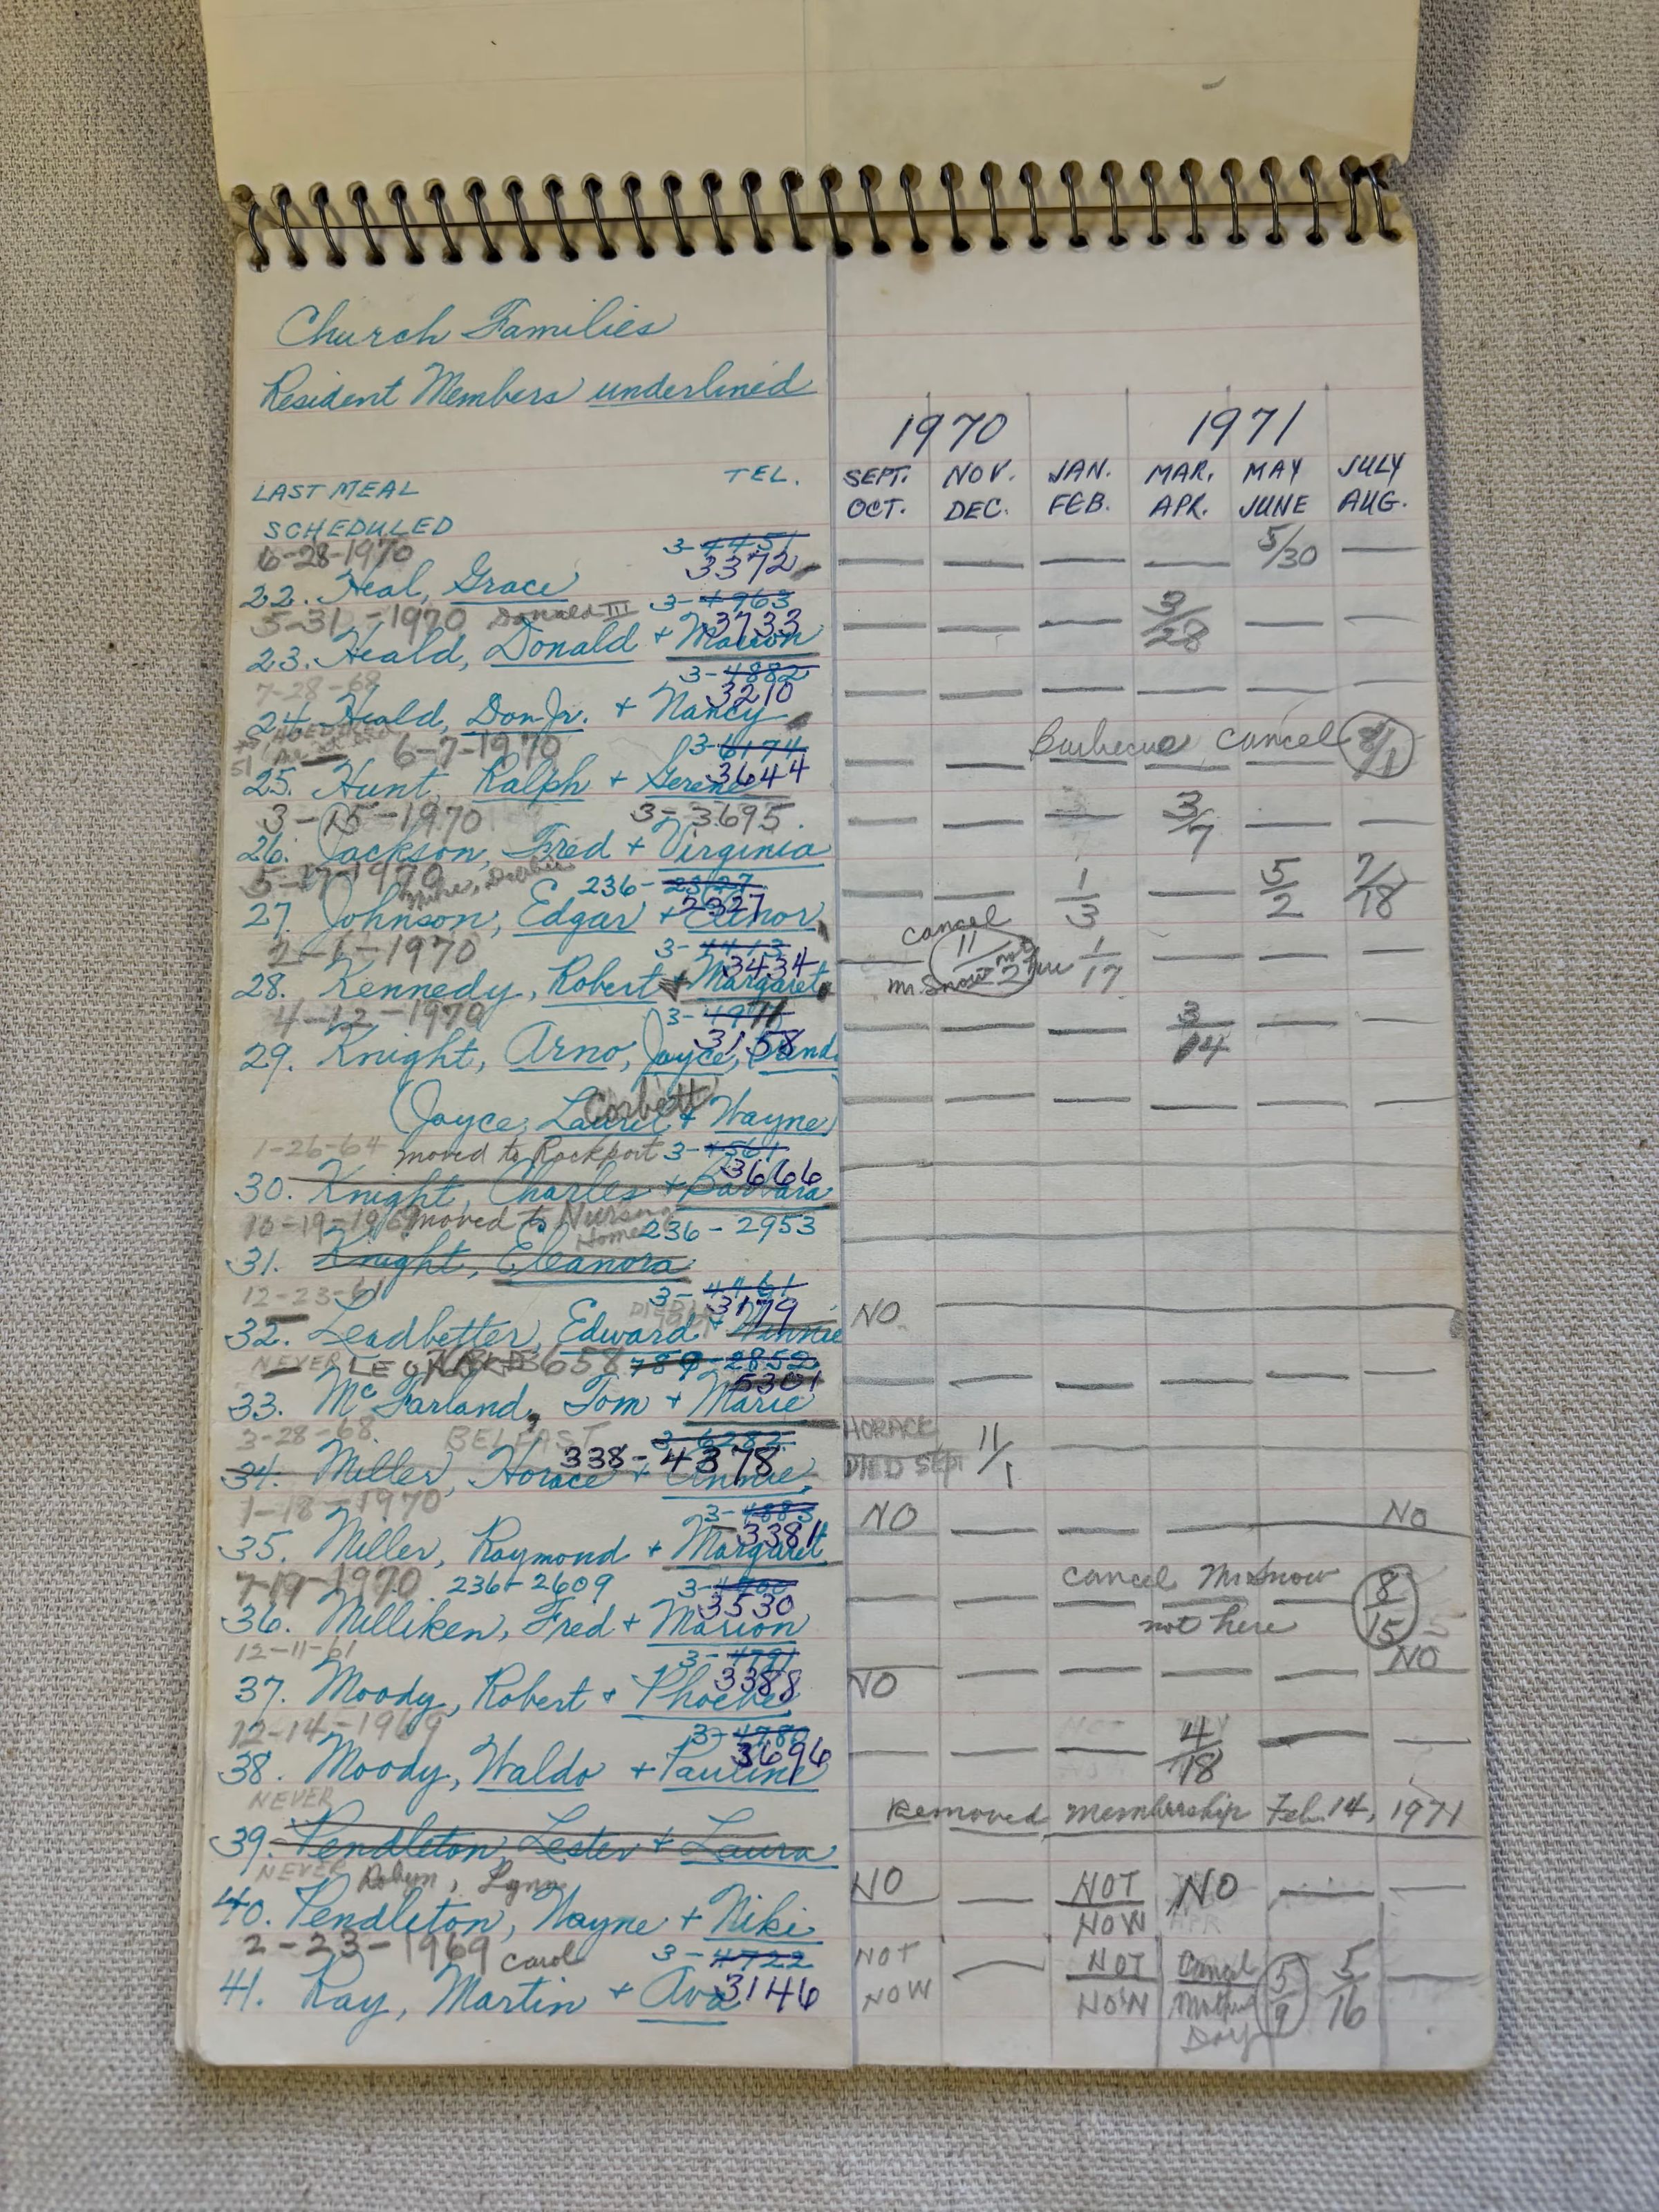 Church Families
Resident Members underlined
1970 1971
LAST MEAL TEL. SEPT. NOV. JAN. MAR. MAY JULY
SCHEDULED OCT. DEC. FEB. APR. JUNE AUG.
6-28-1970 3-4451 5/30
3372
22. Heal, Grace
5-31-1970 Donald III 3-4963 3/28
3733
23. Heald, Donald + Marion
7-28-68 3-4882
3210
24. Heald, Don Jr. + Nancy
6-7-1970 3-6174 Barbecue cancel 8/1
3644
25. Hunt, Ralph + Serene
3-15-1970 3-3695. 3/7
26. Jackson, Fred + Virginia
5-17-1970 Mike, Debbie 236-2327 1/3 5/2 7/18
2327
27. Johnson, Edgar + Elinor
2-1-1970 3-4413 cancel 11/2 1/17
3434 Mr. Snow not here
28. Kennedy, Robert + Margaret
4-12-1970 3-4971 3/14
3158
29. Knight, Arno, Joyce,
(Joyce, Laurie + Wayne)
Corbett
1-26-64 moved to Rockport 3-4561
3666
30. Knight, Charles + Barbara
10-19-1969 moved to Nursing Home 236-2953
31. Knight, Eleanora
12-23-61 3-4461
DIED IN 3179 NO
32. Leadbetter, Edward + Winnie
NEVER 789-2852
5301
33. McFarland, Tom + Marie
3-28-68 BELFAST 3-6282 HORACE 11/1
338-4378 DIED SEPT
34. Miller, Horace + Annie
1-18-1970 3-4883 NO NO
3381
35. Miller, Raymond + Margaret
7-19-1970 236-2609 cancel Mr Snow 8/15
3530 not here
36. Milliken, Fred + Marion
12-11-61 3-4791 NO
3388 NO
37. Moody, Robert + Phoebe
12-14-1969 3-4780 4/18
3696
38. Moody, Waldo + Pauline
NEVER Removed membership Feb. 14, 1971
39. Pendleton, Lester + Laura
NEVER Robyn, Lynn NO NOT NO
40. Pendleton, Wayne + Niki NOW APR
2-23-1969 Carol 3-4722 NOT NOT Cancel 5/9 5/16
41. Ray, Martin + Ava 3146 NOW NOW Mothers
Day